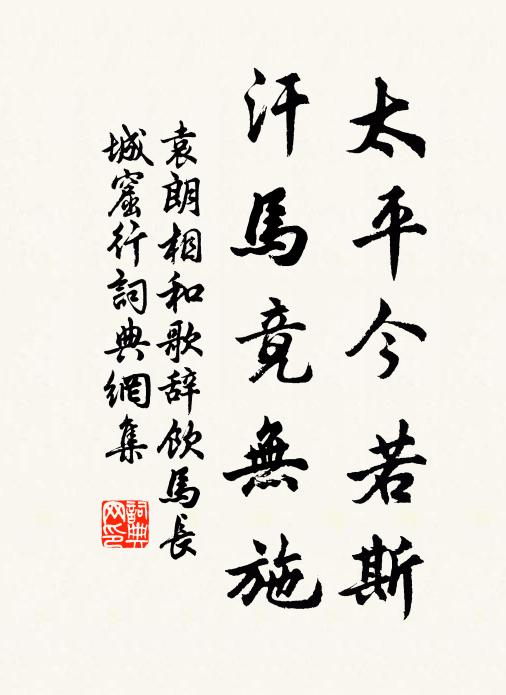 太平今若斯
汗馬竟無施
袁朗相和歌辞飲馬長
城窟行詞典網集
詞典
网印